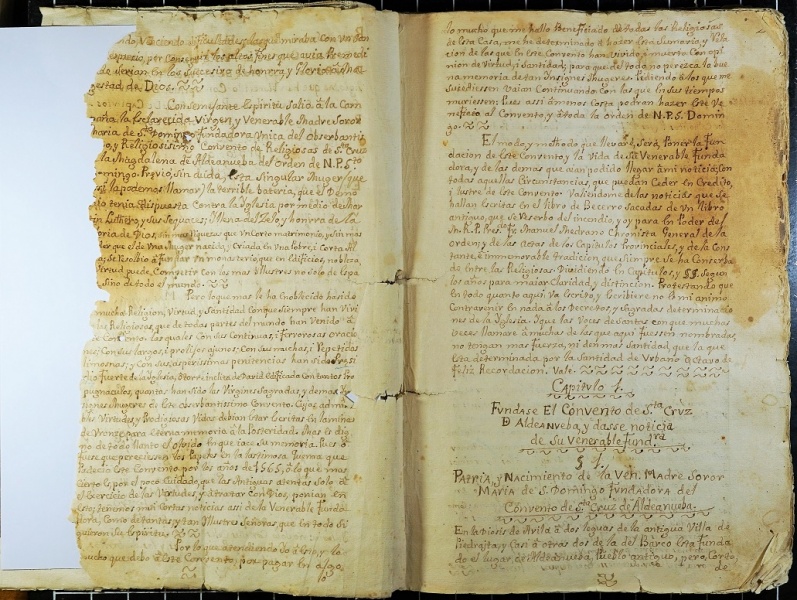 ndo, Venciendo dificultades, las que miraba con un tan
esperio, por Conseguir los altos fines que avia Premedi
de serian en los Successiva de honrra, y Gloria de la Ma
gestad de Dios.
Con semejante Espiritu salió à la Cam
paña la Esclarecida Virgen, y Venerable Madre Soror
Maria de Sto Domingo, fundadora Vnica del Observanti
o, y Religiosissimo Convento de Religiosas de Sta Cruz
la Magdalena de Aldeanueba, del Orden de N. P. Sto
omingo. Previo, sin duda, esta Singular Muger (que
si la podemos llamar) la terrible bateria, que el Demo
nio tenia dispuesta Contra la Iglesia por medio de Mar
tin Luthero, y sus Sequaces; llena del Zelo, y honrra de la
Gloria de Dios, sin mas riquezas que Vn Corto matrimonio, y sin mas
der que el de Vna Muger nacida, y Criada en Vna Pobre, i Corta Al
a; Se Resolbio à fundar Vn Monasterio, que en Edificios, nobleza,
Virtud puede Competir Con los mas Illustres no solo de Espa
Sino de todo el mundo.
Pero lo que mas le ha Enoblecido ha sido
mucha Religion, Virtud, y Santidad Con que siempre han Vivi
sus Religiosas, que de todas partes del mundo han Venido à
te Convento: las quales Con sus Continuas, i fervorosas oracio
nes; Con sus largos, i prolijos ayunos; Con sus muchas, i Repetidas
limosnas; y Con sus asperissimas penitencias han sido Presi
dio fuerte de la Iglesia, ò torre inclita de David Edificada Con tantos Pro
pugnaculos, quantas han sido las Virgines Sagradas, y demas Re
ligiosas Mugeres de este Observantissimo Convento. Cuyas admira
bles Virtudes, y Prodigiosas Vidas debian estar Escritas en laminas
de Vronze para Eterna memoria à la Posteridad. Mas es dig
no de todo llanto el olvido en que iace su memoria. Pues ò
fuese que pereciessen los Papeles en la lastimosa quema que
Padecio Este Convento por los años de 1565, ò lo que mas
cierto es, por el poco Cuidado, que las Antiguas atentas Solo à
el Exercicio de las Virtudes, y à tratar Con Dios, ponian en
esto; tenemos mui Cortas noticias assi de la Venerable funda
dora, Como de tantas, y tan Illustres Señoras, que en todo Si
guieron Su Espiritu.
Por lo que atendiendo Yo à Esto, y lo
mucho que debo à Este Convento, por pagar En algo,
lo mucho que me hallo Beneficiado de todas las Religiosas
de Esta Casa, me he determinado à hazer Esta Sumaria, y Rela
cion de las que En Este Convento han vivido, i muerto Con opi
nion de Virtud, i Santidad; para que de todo no perezca la bue
na memoria de tan Insignes Mugeres. Pidiendo à los que me
Sucediessen Vaian Continuando Con las que en Sus tiempos
muriessen. Pues assi à menos Costa podran hazer Este Be
neficio al Convento, y à toda la Orden de N. P. S. Domin
go.
El modo, y methodo que llevaré, Será, Poner la fun
dacion de Este Convento, y la Vida de Su Venerable funda
dora, y de las demas que aian podido llegar à mi noticia, con
todas aquellas Circumstancias, que puedan Ceder En Credito,
i lustre de Este Convento. Valiendome de las noticias que Se
hallan Escritas En el libro de Becerro Sacadas de Vn libro
antiguo, que Se reserbo del incendio, y oy para En Poder del
M. R. P. Pres.do Fr. Manuel Medrano Chronista General de la
Orden; y de las Actas de los Capitulos Provinciales, y de la Cons
tante, è immemorable tradicion, que Siempre Se ha Conserba
do Entre las Religiosas. Dividiendo En Capitulos, y §§. Segun
los años para maior Claridad, y distincion. Protestando que
En todo quanto aqui Va Escrito, y Escribiere no Es mi animo
Contravenir En nada à los Decretos, y Sagradas determinacio
nes de la Iglesia. I que las Voces de Santas con que muchas
Veces llamare à muchas de las que aqui fuessen nombradas,
no tengan mas fuerza, ni den mas Santidad, que la que
Esta determinada por la Santidad de Vrbano Octavo de
feliz Recordacion. Vale.
Capitulo 1.
Fundase El Convento de Sta Cruz
D Aldeanueba, y dasse noticia
de su Venerable fundra
§ 1.
Patria, y Nacimiento de la Ven. Madre Soror
Maria de S. Domingo fundadora del
Convento de Sta Cruz de Aldeanueba.
En la Diosis de Avila à dos leguas de la antigua Villa de
Piedrahita, y Casi à otras dos de la del Barco Esta funda
do el lugar de Aldeanueba, Pueblo antiguo, pero, Corto
de